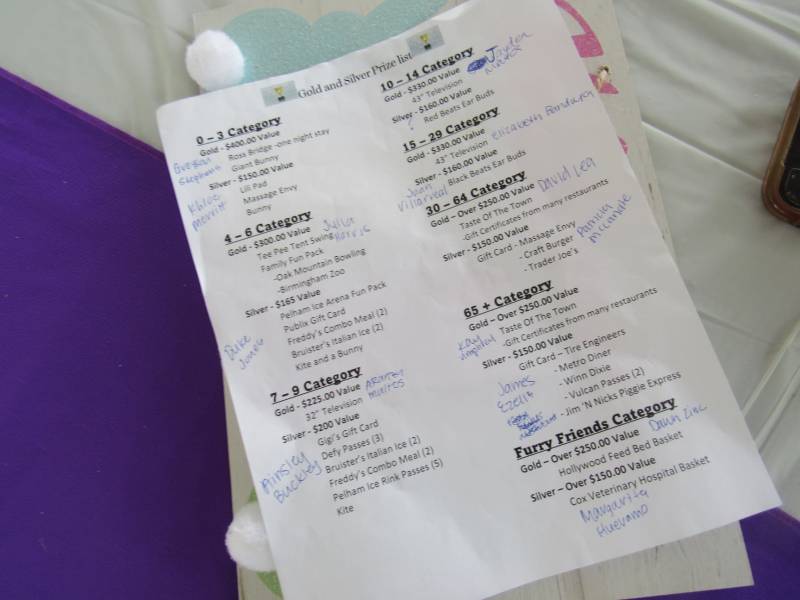 Gold and Silver Prize list
0 – 3 Category
Gold - $400.00 Value
Ross Bridge -one night stay
Giant Bunny
Silver - $150.00 Value
Lili Pad
Massage Envy
Bunny
Stephens
Khloe
Merritt
4 – 6 Category
Gold - $300.00 Value
Julia
Harris
Tee Pee Tent Swing
Family Fun Pack
-Oak Mountain Bowling
-Birmingham Zoo
Silver - $165 Value
Pelham Ice Arena Fun Pack
Publix Gift Card
Freddy's Combo Meal (2)
Bruister's Italian Ice (2)
Kite and a Bunny
Duke
Jones
7 – 9 Category
Gold - $225.00 Value
32" Television
Silver - $200 Value
Gigi's Gift Card
Defy Passes (3)
Bruister's Italian Ice (2)
Freddy's Combo Meal (2)
Pelham Ice Rink Passes (5)
Kite
Ainsley
Buckley
10 – 14 Category
Gold - $330.00 Value
Jayden
43" Television
Silver - $160.00 Value
Red Beats Ear Buds
15 – 29 Category
Gold - $330.00 Value
Elizabeth
43" Television
Silver - $160.00 Value
Black Beats Ear Buds
Juan
Villarreal
30 – 64 Category
Gold – Over $250.00 Value
David Lea
Taste Of The Town
-Gift Certificates from many restaurants
Silver - $150.00 Value
Gift Card - Massage Envy
- Craft Burger
- Trader Joe's
Patricia
65 + Category
Gold – Over $250.00 Value
Taste Of The Town
-Gift Certificates from many restaurants
Kay
Silver - $150.00 Value
Gift Card – Tire Engineers
- Metro Diner
- Winn Dixie
- Vulcan Passes (2)
- Jim 'N Nicks Piggie Express
James
Ezelle
Furry Friends Category
Gold – Over $250.00 Value
Dawn
Hollywood Feed Bed Basket
Silver – Over $150.00 Value
Cox Veterinary Hospital Basket
Margarita
Huevamo